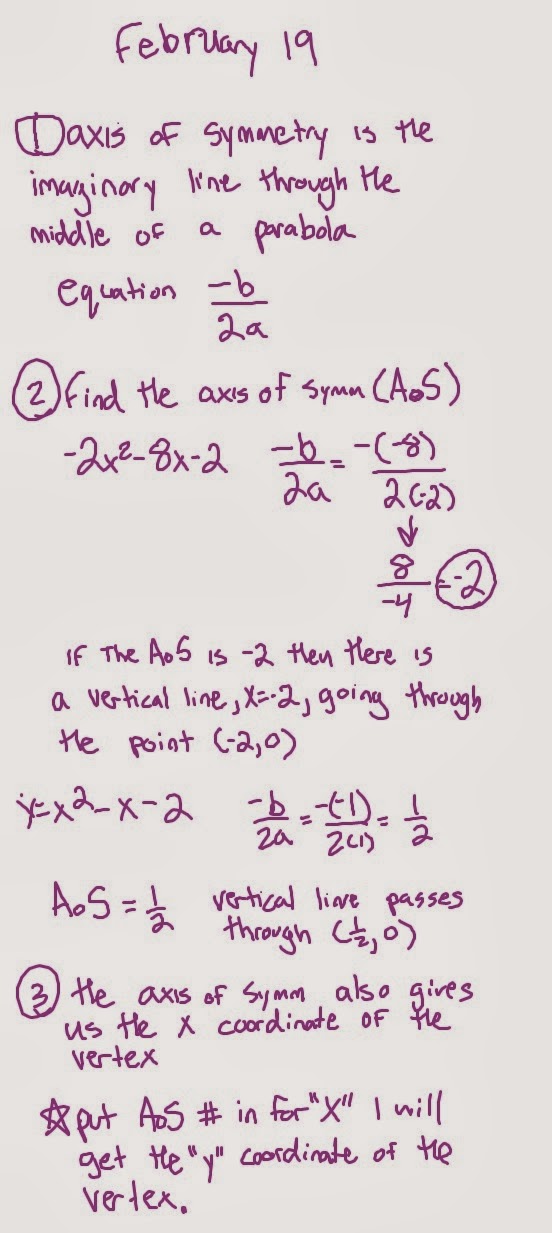 February 19
① axis of symmetry is the
imaginary line through the
middle of a parabola
equation -b/2a
② Find the axis of symm (AoS)
-2x²-8x-2 -b/2a = -(-8)/2(-2)
↓
8/-4 = -2
if The AoS is -2 then there is
a vertical line, x=-2, going through
the point (-2,0)
y=x²-x-2 -b/2a = -(-1)/2(1) = 1/2
AoS = 1/2 vertical line passes
through (1/2, 0)
③ the axis of symm also gives
us the x coordinate of the
vertex
☆ put AoS # in for "X" I will
get the "y" coordinate of the
vertex.